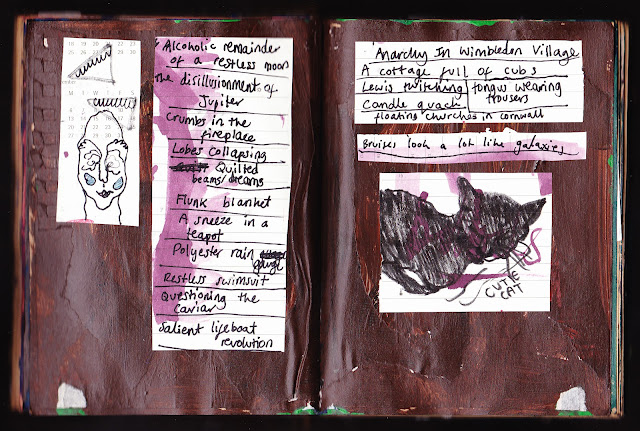 Alcoholic remainder
of a restless moon
the disillusionment of
Jupiter
Crumbs in the
fireplace
Lobes collapsing
Quilted
beams/dreams
Flunk blanket
A sneeze in a
teapot
Polyester rain
gauge
Restless swimsuit
Questioning the
caviar
Salient lifeboat
revolution
Anarchy In Wimbledon Village
A cottage full of cubs
Lewis twitching
Candle quack
tongue wearing
trousers
floating churches in cornwall
Bruises look a lot like galaxies
CUTIE
CAT